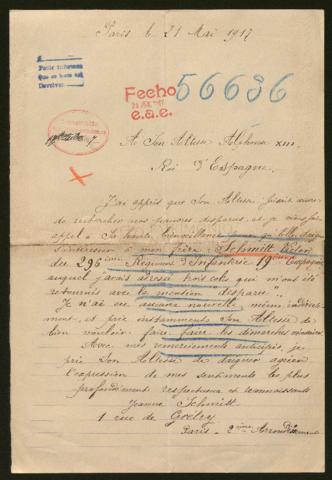 Paris le 21 Mai 1917
Fecho
e.a.e.
56636
A Son Altesse Alphonse XIII
Roi d'Espagne.
J'ai appris que Son Altesse faisait
de rechercher nos pauvres disparus et je viens faire
appel à Sa haute bienveillance
mon frère Schmitt
du 298ème Régiment Infanterie 19ème Compagnie
auquel j'avais adressé trois colis qui m'ont été
retournés avec la mention disparu".
Je n'ai eu aucune nouvelle même
ment, et prie instamment Son Altesse de
bien vouloir faire faire les démarches
Avec mes remerciements anticipés, je
prie Son Altesse de daigner agréer
l'expression de mes sentiments les plus
profondément respectueux et reconnaissants
Jeanne Schmitt
1 rue de
Paris - 2ème Arrondissement